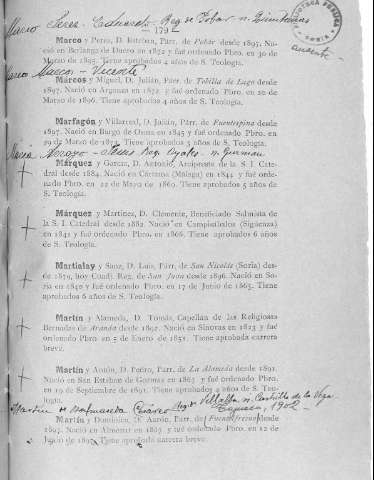 Marco Peres -
— 179 —
Marco y Peres, D. Esteban, Párr. de Pobar desde 1897. Na-
ció en Berlanga de Duero en 1872 y fué ordenado Pbro. en 30 de
Marzo de 1895. Tiene aprobados 4 años de S. Teología.
Marco Vicente
Márcos y Miguel, D. Julián, Párr. de Tobilla de Lago desde
1897. Nació en Arganza en 1872 y fué ordenado Pbro. en 20 de
Marzo de 1896. Tiene aprobados 4 años de S. Teología.
Marfagón y Villarreal, D. Julián, Párr. de Fuentespina desde
1897. Nació en Burgo de Osma en 1845 y fué ordenado Pbro. en
29 de Marzo de Tiene aprobados 5 años de S. Teología.
Márquez y García, D. Antonio, Arcipreste de la S. I. Cate-
dral desde 1884. Nació en Cártama (Málaga) en 1844 y fué orde-
nado Pbro. en 22 de Mayo de 1869. Tiene aprobados 5 años de
S. Teología.
Márquez y Martínez, D. Clemente, Beneficiado Salmista de
la S. I. Catedral desde 1882. Nació en Campisábalos (Sigüenza)
en 1841 y fué ordenado Pbro. en 1866. Tiene aprobados 6 años
de S. Teología.
Martialay y Sanz, D. Luis, Párr. de San Nicolás (Soria) des-
de 1879, hoy Coadj. Reg. de San Juan desde 1896. Nació en So-
ria en 1840 y fué ordenado Pbro. en 17 de Junio de 1865. Tiene
aprobados 6 años de S. Teología.
Martín y Alameda, D. Tomás, Capellán de las Religiosas
Bernadas de Aranda desde 1892. Nació en Sinovas en 1823 y fué
ordenado Pbro. en 5 de Enero de 1851. Tiene aprobada carrera
breve.
Martín y Antón, D. Pedro, Párr. de La Alameda desde 1891.
Nació en San Esteban de Gormaz en 1865 y fué ordenado Pbro.
en 19 de Septiembre de 1891. Tiene aprobados 4 años de S. Teo-
logía.
Martín Reg. de Villalba n. Castrillo de la Vega
1902
Martín y Domínico, D. Aarón, Párr. de Fuentefresno desde
1897. Nació en Almarai en 1865 y fué ordenado Pbro. en 12 de
Junio de 1897. Tiene aprobada carrera breve.